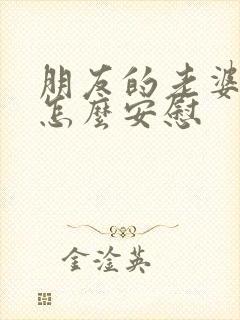 朋友的老婆
怎麼安慰
金淦英